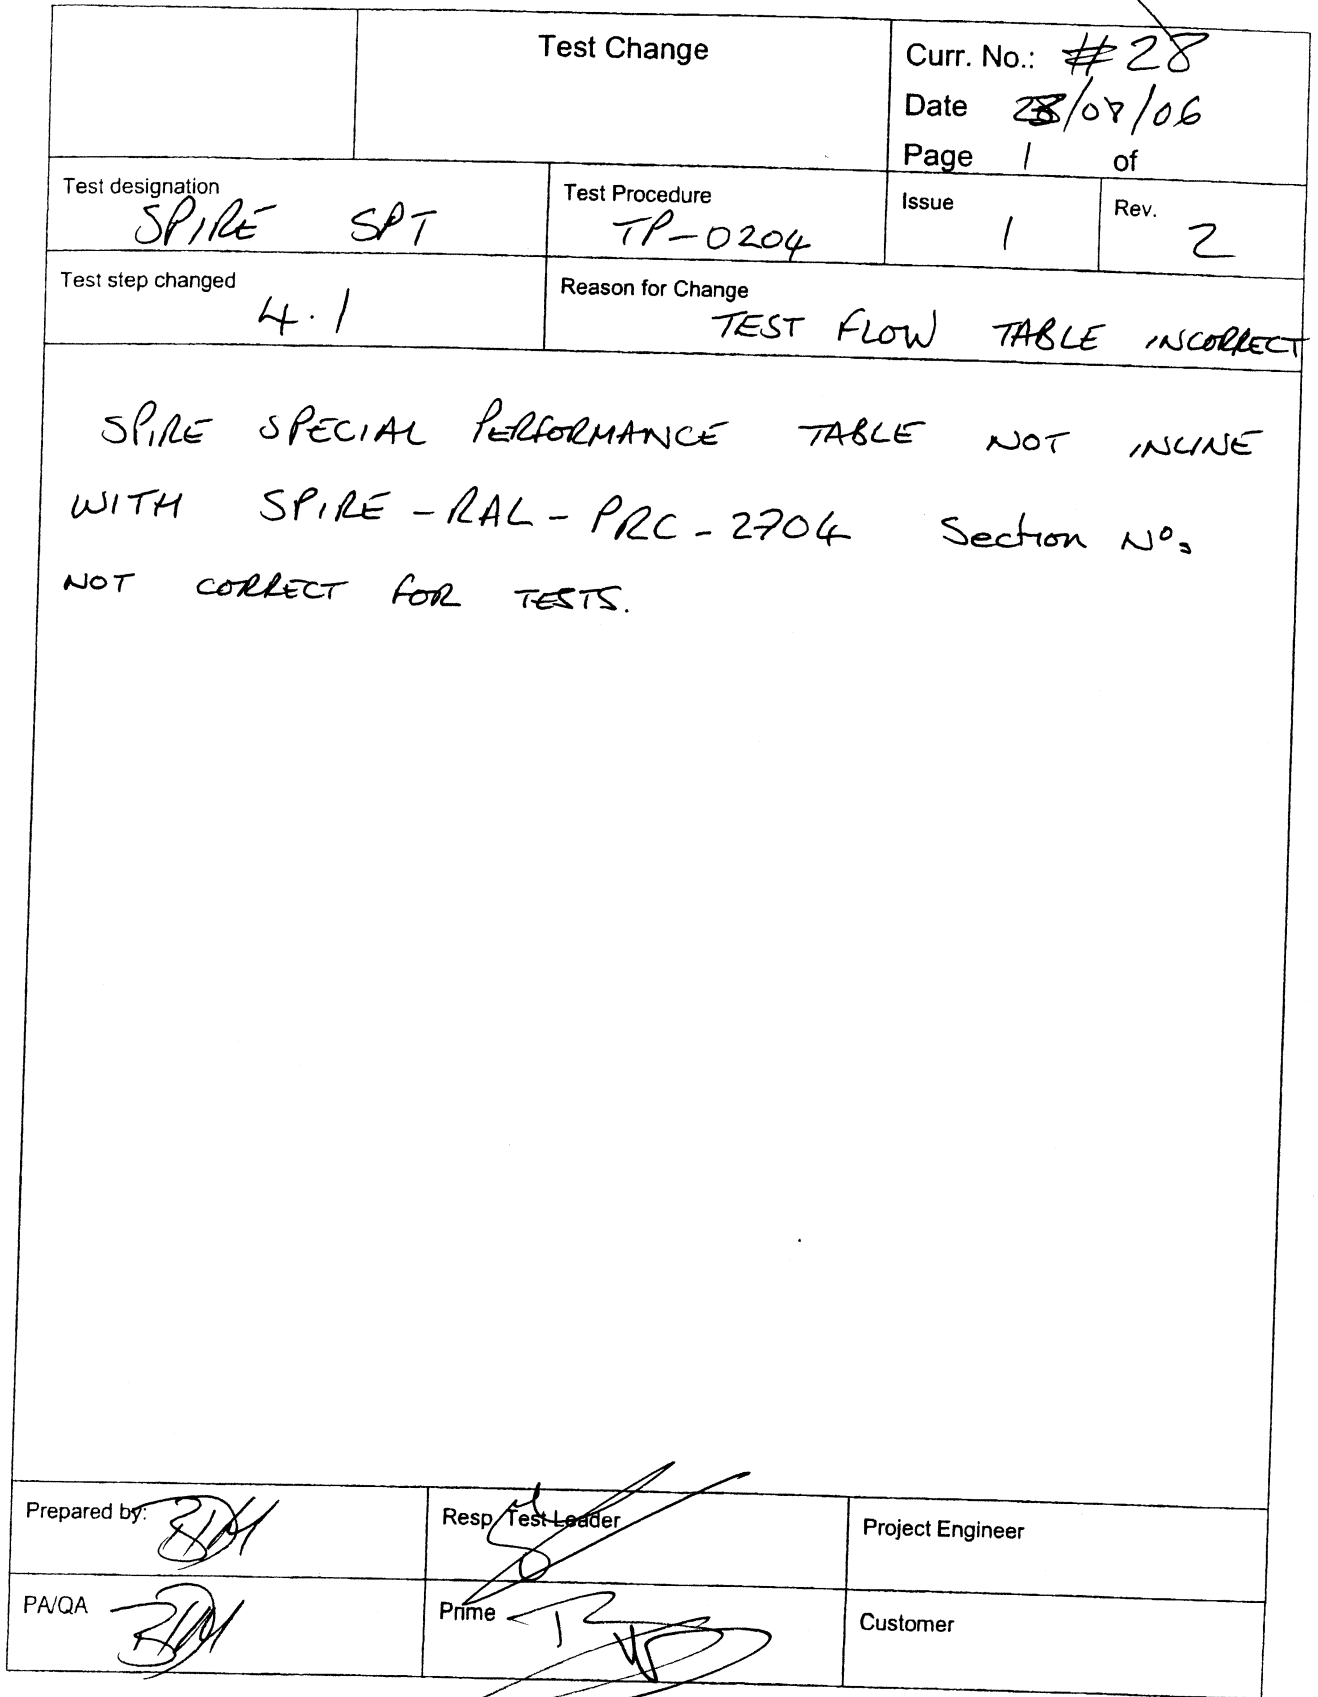 Test Change
Curr. No.: #28
Date /09/06
Page 1 of
Test designation
SPIRE SPT
Test Procedure
TP-0204
Issue
1
Rev.
2
Test step changed
4.1
Reason for Change
TEST FLOW TABLE INCORRECT
SPIRE SPECIAL PERFORMANCE TABLE NOT INLINE
WITH SPIRE-RAL-PRC-2704 Section Nos
NOT CORRECT FOR TESTS.
Prepared by:
Resp Test Leader
Project Engineer
PA/QA
Prime
Customer